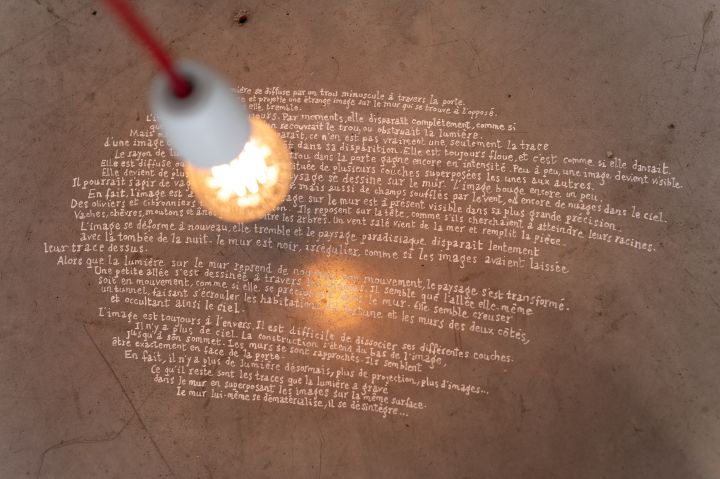 lumière se diffuse par un trou minuscule à travers la porte,
et projette une étrange image sur le mur qui se trouve à l'opposé.
elle tremble.
L'i jours. Par moments, elle disparaît complètement, comme si
qu n recouvrait le trou, ou obstruait la lumière.
Mais paraît, ce n'en est pas vraiment une, seulement la trace
d'une image dans sa disparition. Elle est toujours floue, et c'est comme si elle dansait.
Le rayon de trou dans la porte gagne encore en intensité. Peu à peu, une image devient visible.
Elle est diffuse stituée de plusieurs couches superposées les unes aux autres.
Elle devient de plus paysage se dessine sur le mur. L'image bouge encore un peu,
Il pourrait s'agir de vag mais aussi de champs soufflés par le vent, ou encore de nuages dans le ciel.
En fait, l'image est à sage sur le mur est à présent visible dans sa plus grande précision.
Des oliviers et citronniers Ils reposent sur la tête, comme s'ils cherchaient à atteindre leurs racines.
Vaches, chèvres, moutons et ânes entre les arbres. Un vent salé vient de la mer et remplit la pièce.
L'image se déforme à nouveau, elle tremble et le paysage paradisiaque disparaît lentement
avec la tombée de la nuit. Le mur est noir, irrégulier, comme si les images avaient laissée
leur trace dessus.
Alors que la lumière sur le mur reprend de nou mouvement, le paysage s'est transformé.
Une petite allée s'est dessinée à travers Il semble que l'allée elle-même
soit en mouvement, comme si elle se précip le mur. Elle semble creuser
un tunnel, faisant s'écrouler les habitations tune, et les murs des deux côtés,
et occultant ainsi le ciel.
L'image est toujours à l'envers. Il est difficile de dissocier ses différentes couches.
Il n'y a plus de ciel. La construction s'étend du bas de l'image,
jusqu'à son sommet. Les murs se sont rapprochés. Ils semblent
être exactement en face de la porte.
En fait, il n'y a plus de lumière désormais, plus de projection, plus d'images...
Ce qu'il reste sont les traces que la lumière a gravé
dans le mur en superposant les images sur la même surface.
Le mur lui-même se dématérialise, il se désintègre...